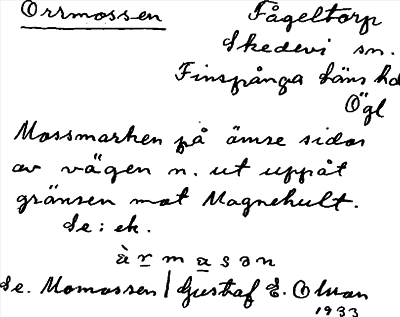 Orrmossen
Fågeltorp
Skedevi sn.
Finspånga läns hd
Ögl
Mossmarken på ömse sidor
av vägen n. ut uppåt
gränsen mot Magnehult.
Se: ek.
àrmasən
Se. Momossen / Gustaf E. Olman
1933